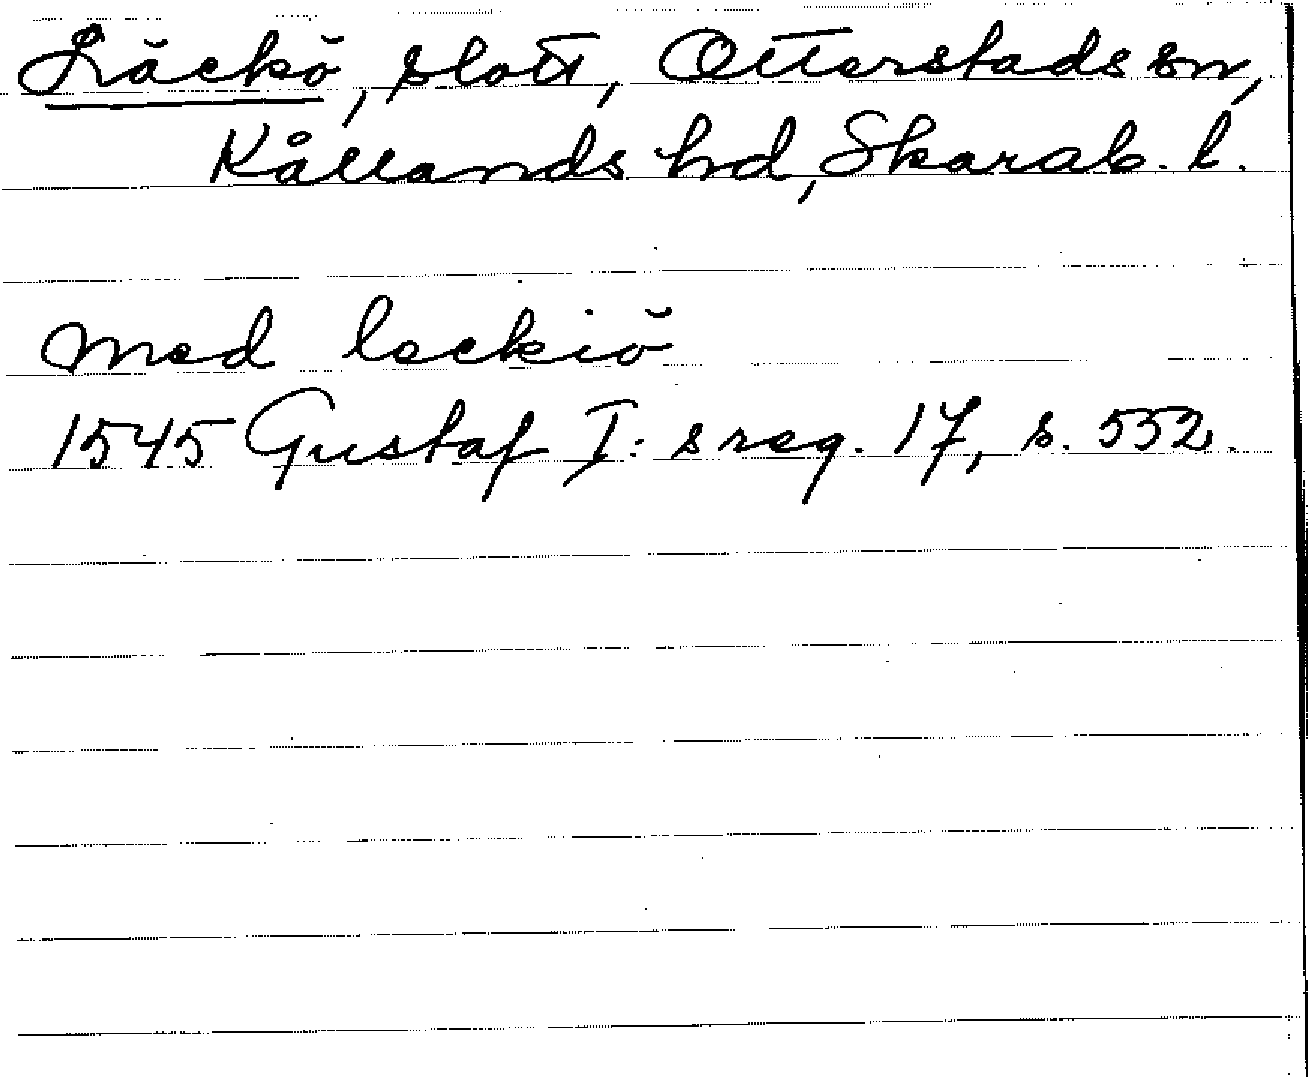 Läckö, slott, Otterstads sn,
Kållands hd, Skarab. l.
med leckiö
1545 Gustaf I: s reg. 17, s. 552.